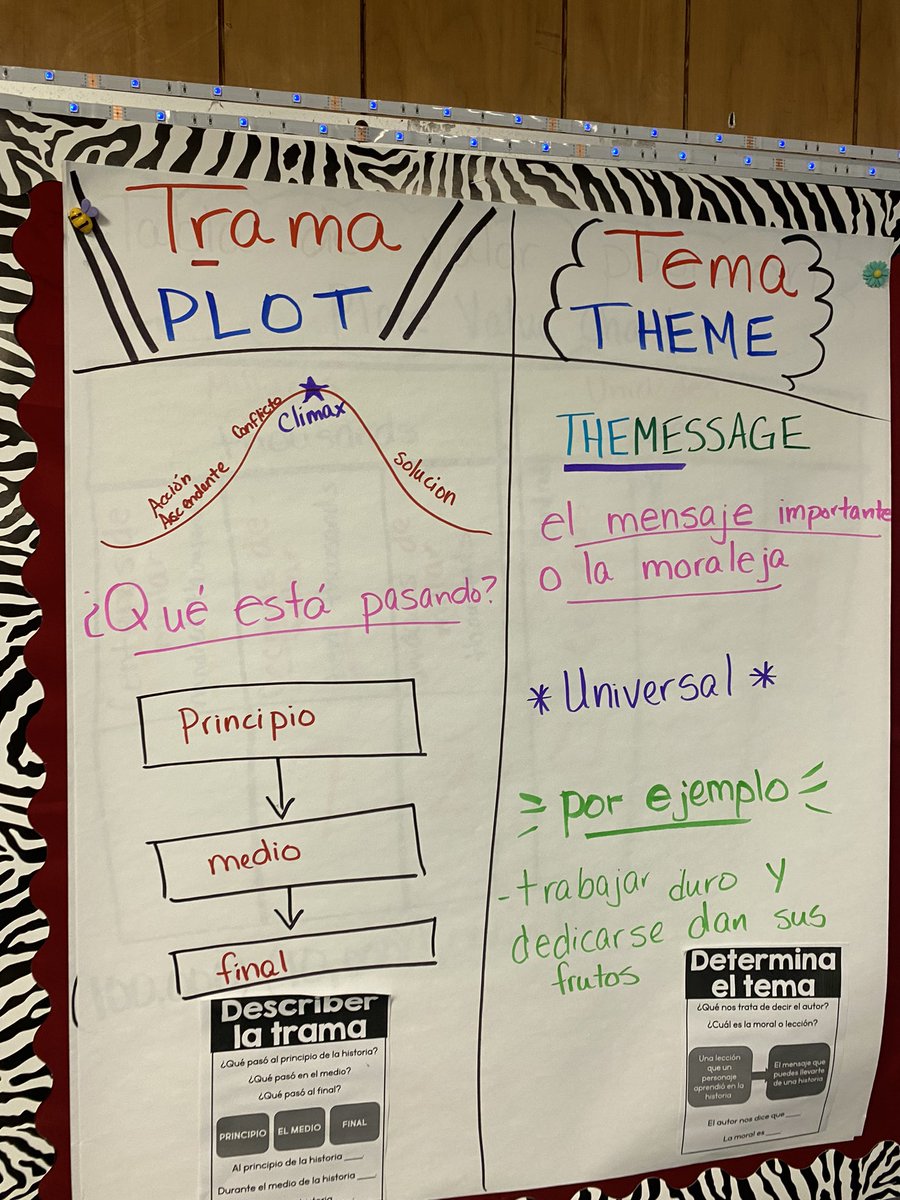 Trama
PLOT
Climax
Conflicto
Acción
Ascendente
solucion
¿Qué está pasando?
Principio
medio
final
Describer
la trama
¿Qué pasó al principio de la historia?
¿Qué pasó en el medio?
¿Qué pasó al final?
PRINCIPIO
EL MEDIO
FINAL
Al principio de la historia ____
Durante el medio de la historia ____
Tema
THEME
THEMESSAGE
el mensaje importante
o la moraleja
*Universal*
por ejemplo
-trabajar duro y
dedicarse dan sus
frutos
Determina
el tema
¿Qué nos trata de decir el autor?
¿Cuál es la moral o lección?
Una lección
que un
personaje
aprendió en la
historia
El mensaje que
puedes llevarte
de una historia
El autor nos dice que ____
La moral es ____